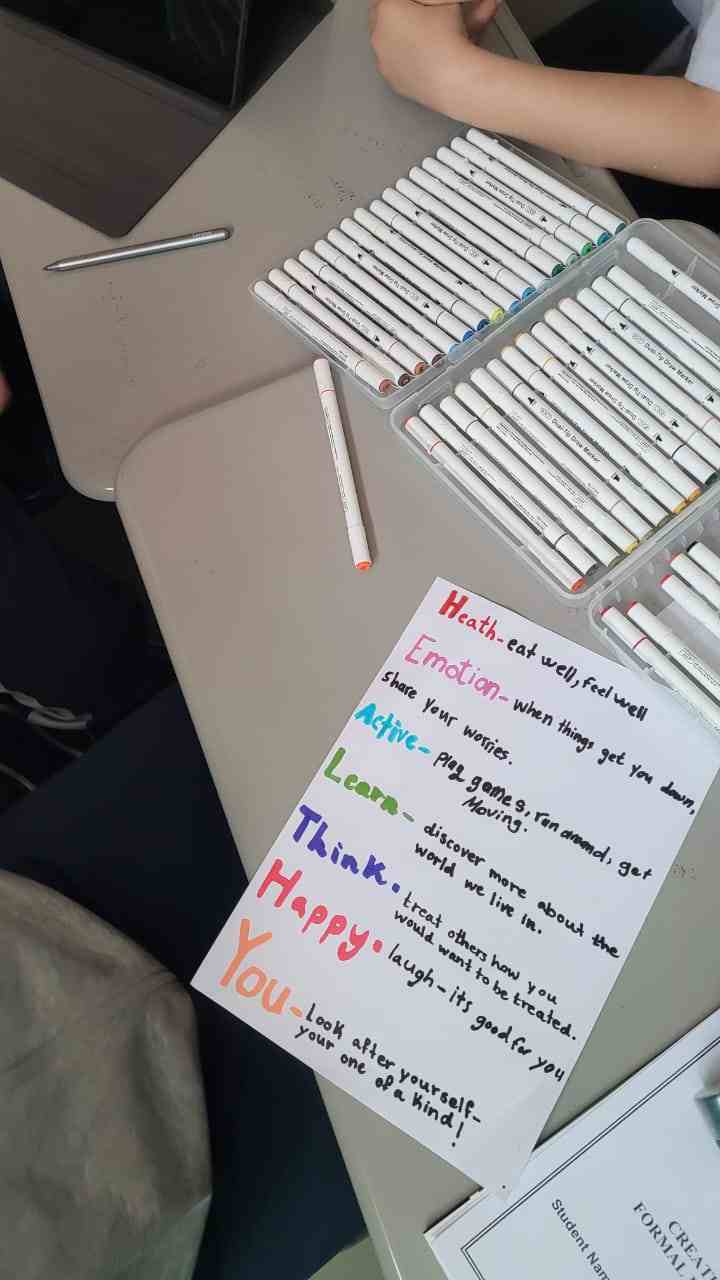 Dual-Tip Draw Marker
Dual-Tip Draw Marker
Dual-Tip Draw Marker
Heath-eat well, feel well
Emotion-when things get you down,
share your worries.
Active-play games, run around, get
Moving.
Learn-discover more about the
world we live in.
Think.treat others how you
would want to be treated.
Happy.laugh-its good for you
You-look after yourself-
your one of a kind!
CREAT
FORMAL
Student Nam